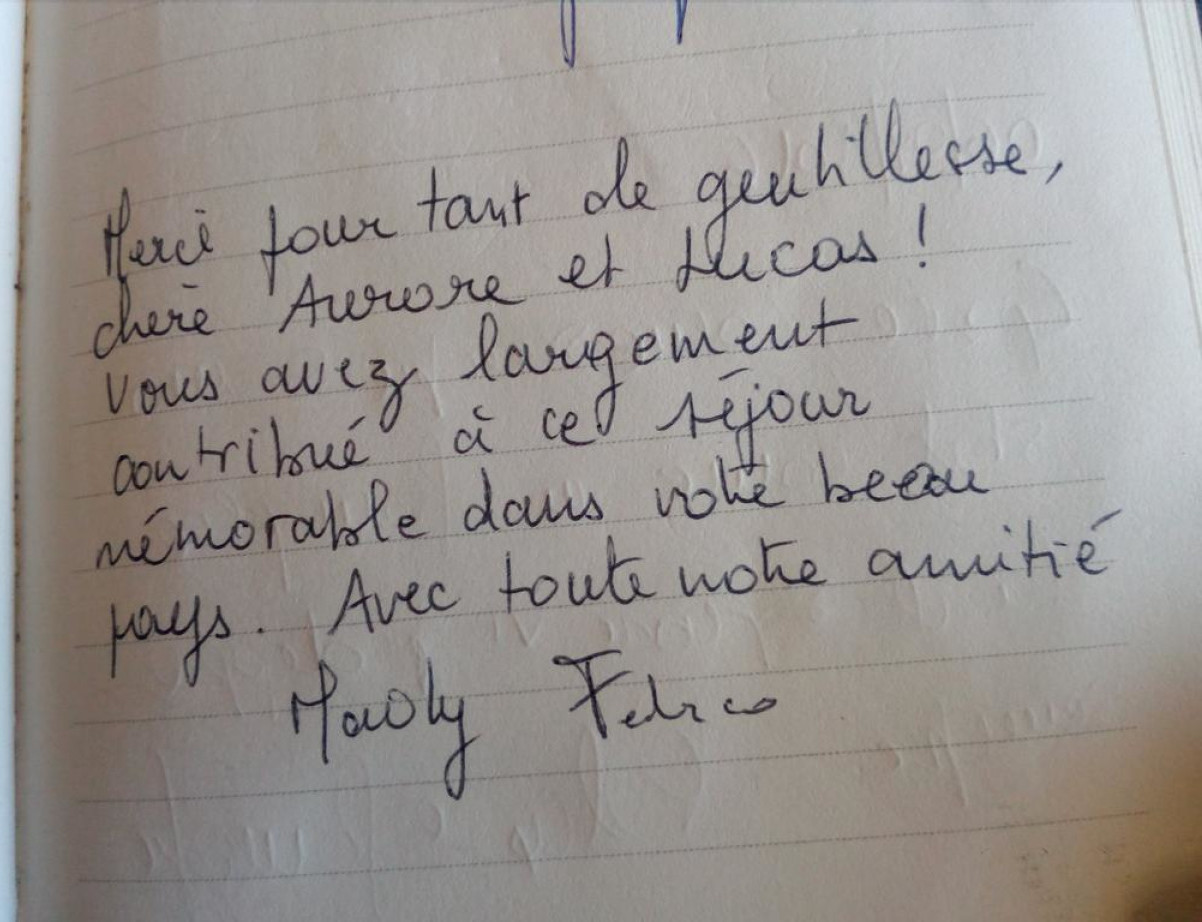 Merci pour tant de gentillesse,
chère Aurore et Lucas !
Vous avez largement
contribué à ce séjour
mémorable dans votre beau
pays. Avec toute notre amitié